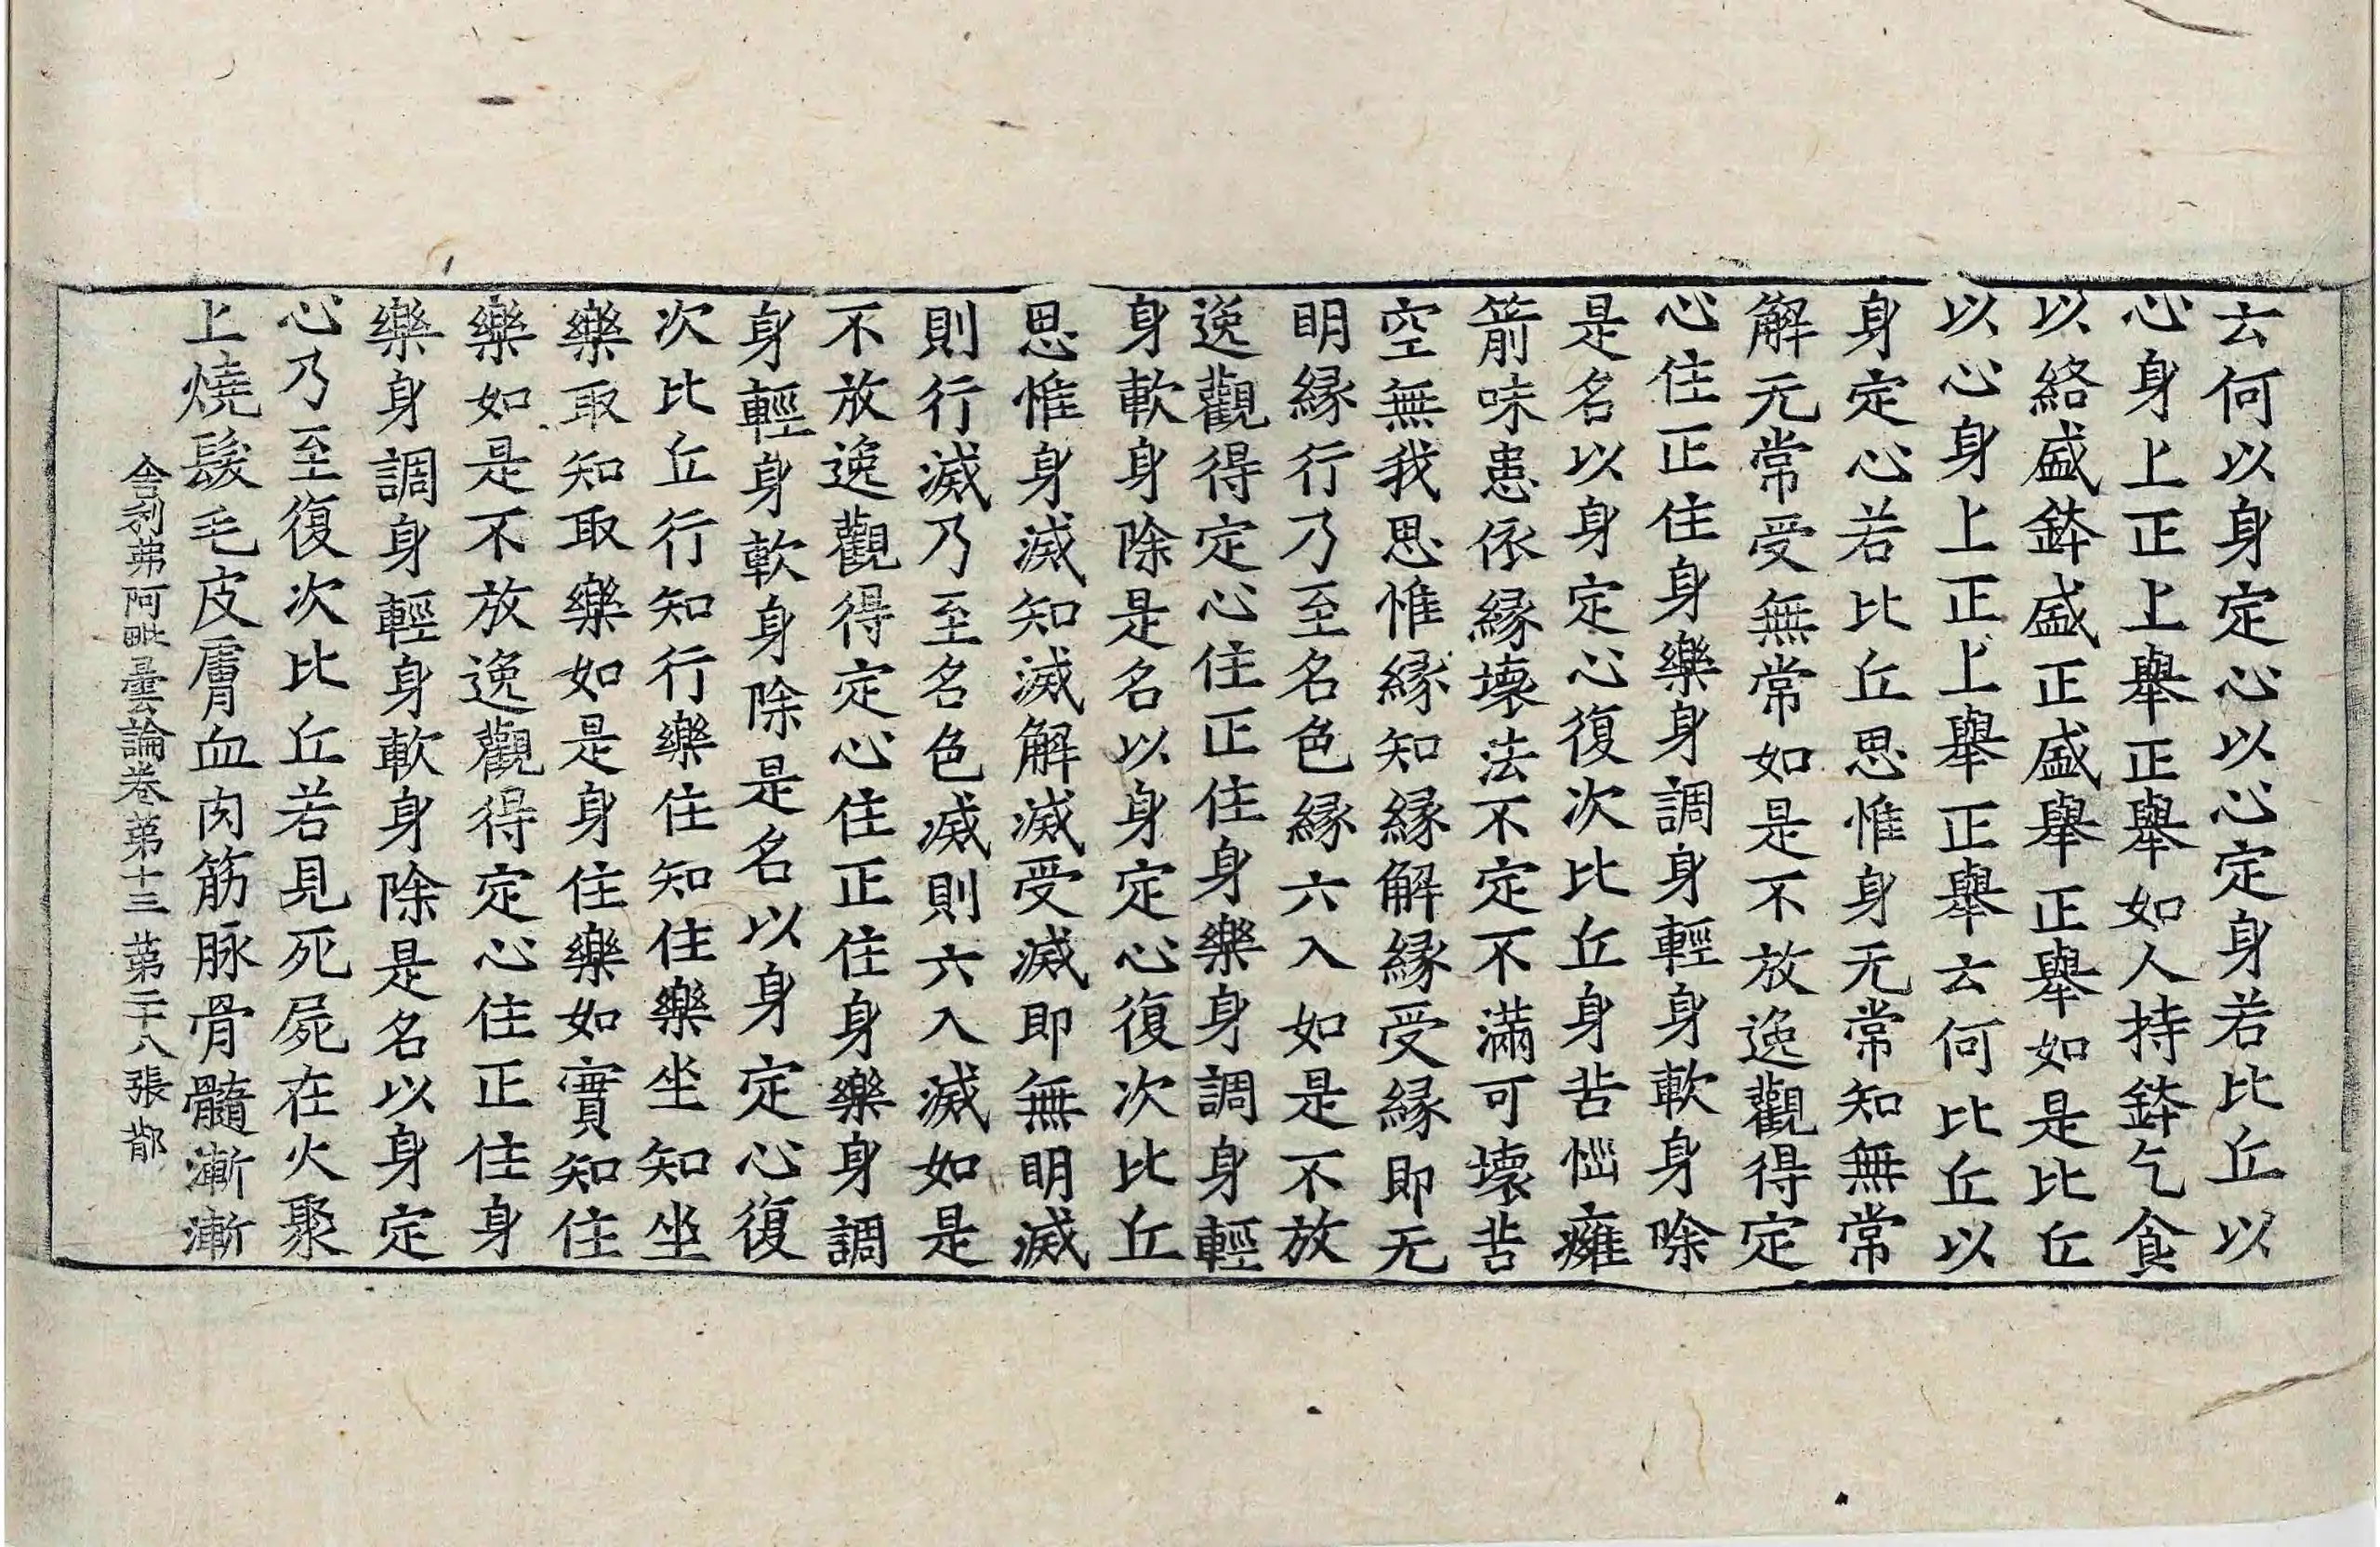 云何以身定心以心定身若比丘以
心身上正上舉正舉如人持鉢乞食
以絡盛鉢盛正盛舉正舉如是比丘
以心身上正上舉正舉云何比丘以
身定心若比丘思惟身无常知無常
解无常受無常如是不放逸觀得定
心住正住身樂身調身輕身軟身除
是名以身定心復次比丘身苦惱癰
箭味患依緣壞法不定不滿可壞苦
空無我思惟緣知緣解緣受緣即无
明緣行乃至名色緣六入如是不放
逸觀得定心住正住身樂身調身輕
身軟身除是名以身定心復次比丘
思惟身滅知滅解滅受滅即無明滅
則行滅乃至名色滅則六入滅如是
不放逸觀得定心住正住身樂身調
身輕身軟身除是名以身定心復
次比丘行知行樂住知住樂坐知坐
樂取知取樂如是身住樂如實知住
樂如是不放逸觀得定心住正住身
樂身調身輕身軟身除是名以身定
心乃至復次比丘若見死屍在火聚
上燒髮毛皮膚血肉筋脉骨髓漸漸
舍利弗阿毗曇論卷第十三 第二十八張